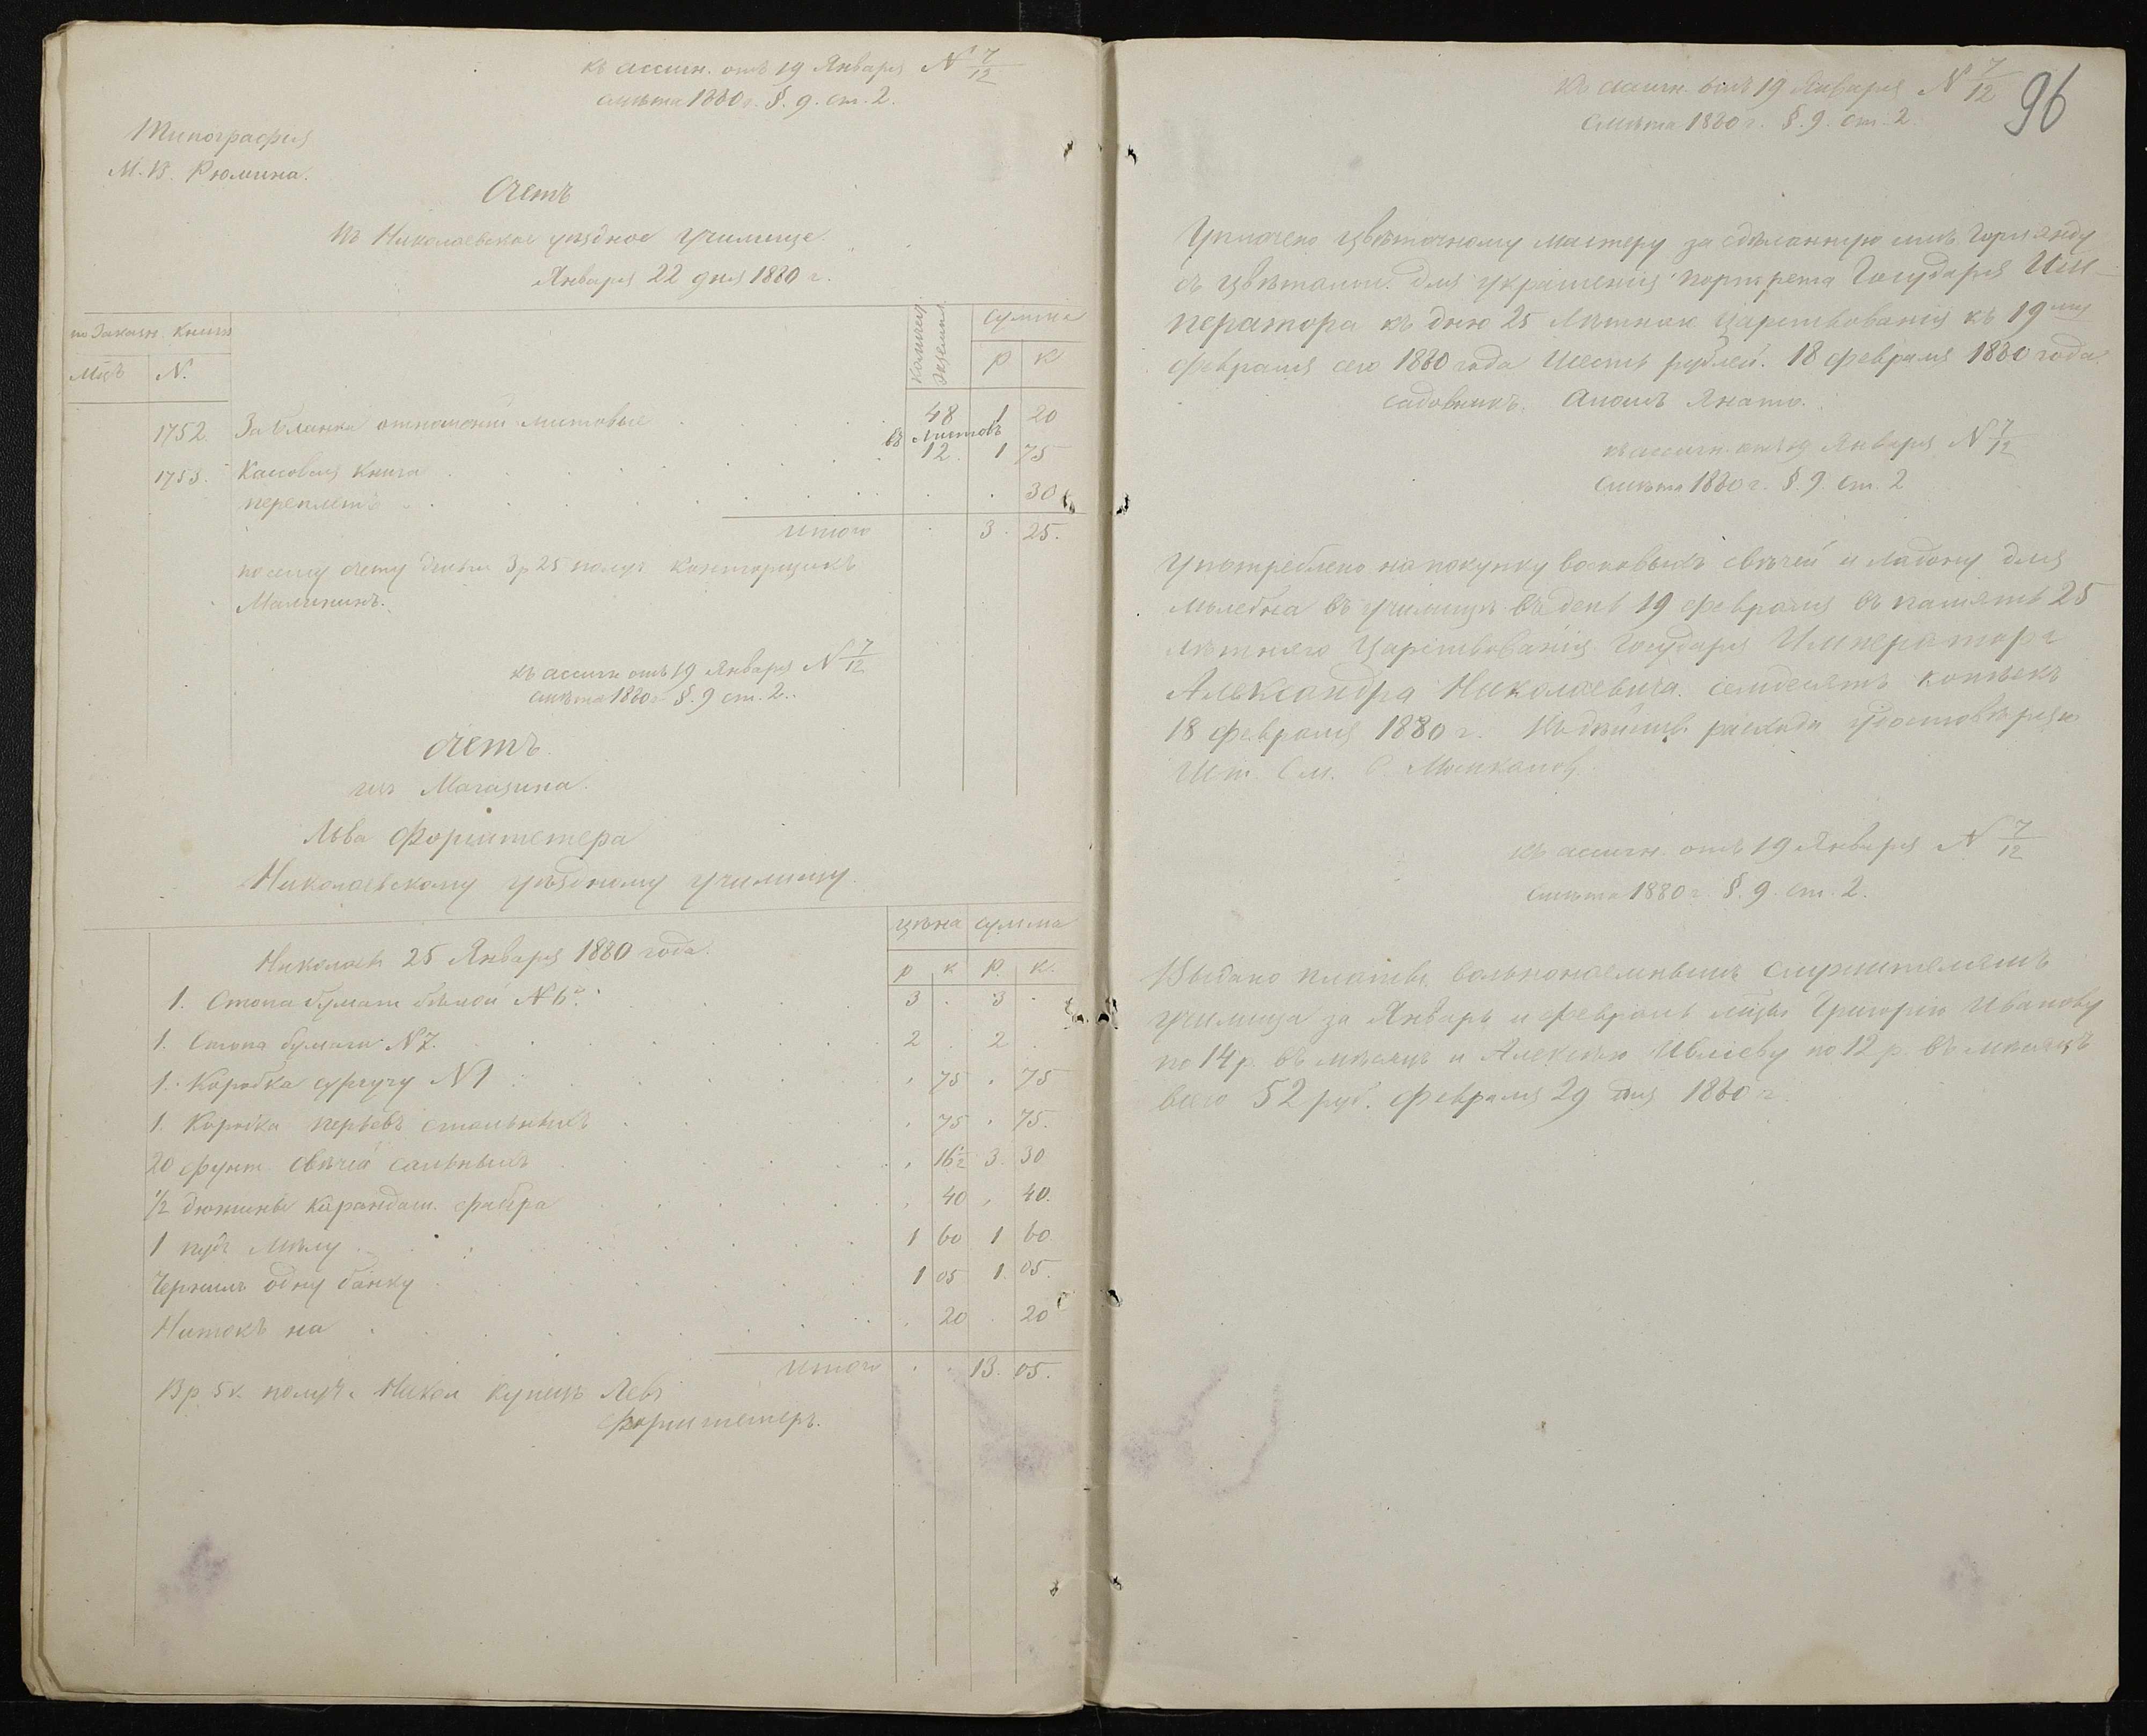 къ ассигн. отъ 19 Января N 7/12
смѣта 1880 г. §. 9. ст. 2.
Типографія
М. В. Рюмина.
Счетъ
Въ Николаевское уѣздное училище.
Января 22 дня 1880 г.
по Заказн. книги
Мцъ N.
Количест. Экземпляр.
Сумма
р к
1752. За бланки листовые 48 1 20
въ листовъ
1753. Кассовая книга 12. 1 75
переплетъ 30
итого 3. 25.
по сему счету деньги 3 р 25 получ. Конторщикъ
Малининъ.
къ ассигн отъ 19 Января N 7/12
смѣта 1880 г §. 9 ст. 2.
Счетъ.
изъ Магазина.
Льва Форштетера
Николаевскому уѣздному училищу.
цѣна сумма
Николаевъ 25 Января 1880 года.
р к р. к.
1. Стопа бумаги бѣлой N 6. 3 . 3 .
1. Стопа бумаги N 7. 2 . 2 .
1. Коробка сургучу N 1 75 75
1. Коробка перьевъ стальныхъ 75 75.
20 фунт. свѣчей сальныхъ 16½ 3. 30
½ дюжины карандаш. Фабера 40 40.
1 пудъ мѣлу 1 60 1 60
Чернилъ одну банку 1 05 1. 05.
Нитокъ на 20 20
итого 13. 05.
13 р 5 к. получ. Никол купецъ Левъ
Форштетеръ.
къ ассигн. отъ 19 Января N 7/12
96
смѣта 1880 г. §. 9. ст. 2.
Уплочено цвѣточному мастеру за сдѣланную имъ гирлянду
съ цвѣтами для украшенія портрета Государя Им-
ператора къ дню 25 лѣтняго Царствованія къ 19 му
февраля сего 1880 года Шесть рублей. 18 февраля 1880 года.
садовникъ.
къ ассигн. отъ 19 Января N 7/12
смѣта 1880 г. §. 9. ст. 2
Употреблено на покупку восковыхъ свѣчей и ладону для
молебна въ училищѣ въ день 19 февраля въ память 25
лѣтняго Царствованія Государя Императора
Александра Николаевича. семдесятъ копѣекъ
18 февраля 1880 г. Въ дѣйств. расхода удостовѣряю
Шт. См.
къ ассигн. отъ 19 Января N 7/12
смѣта 1880 г. §. 9. ст. 2.
Выдано платы вольнонаемнымъ служителямъ
училища за Январь и февраль мцы Григорію Иванову
по 14 р. въ мѣсяцъ и Алексѣю по 12 р. въ мѣсяцъ
всего 52 руб. февраля 29 дня 1880 г.